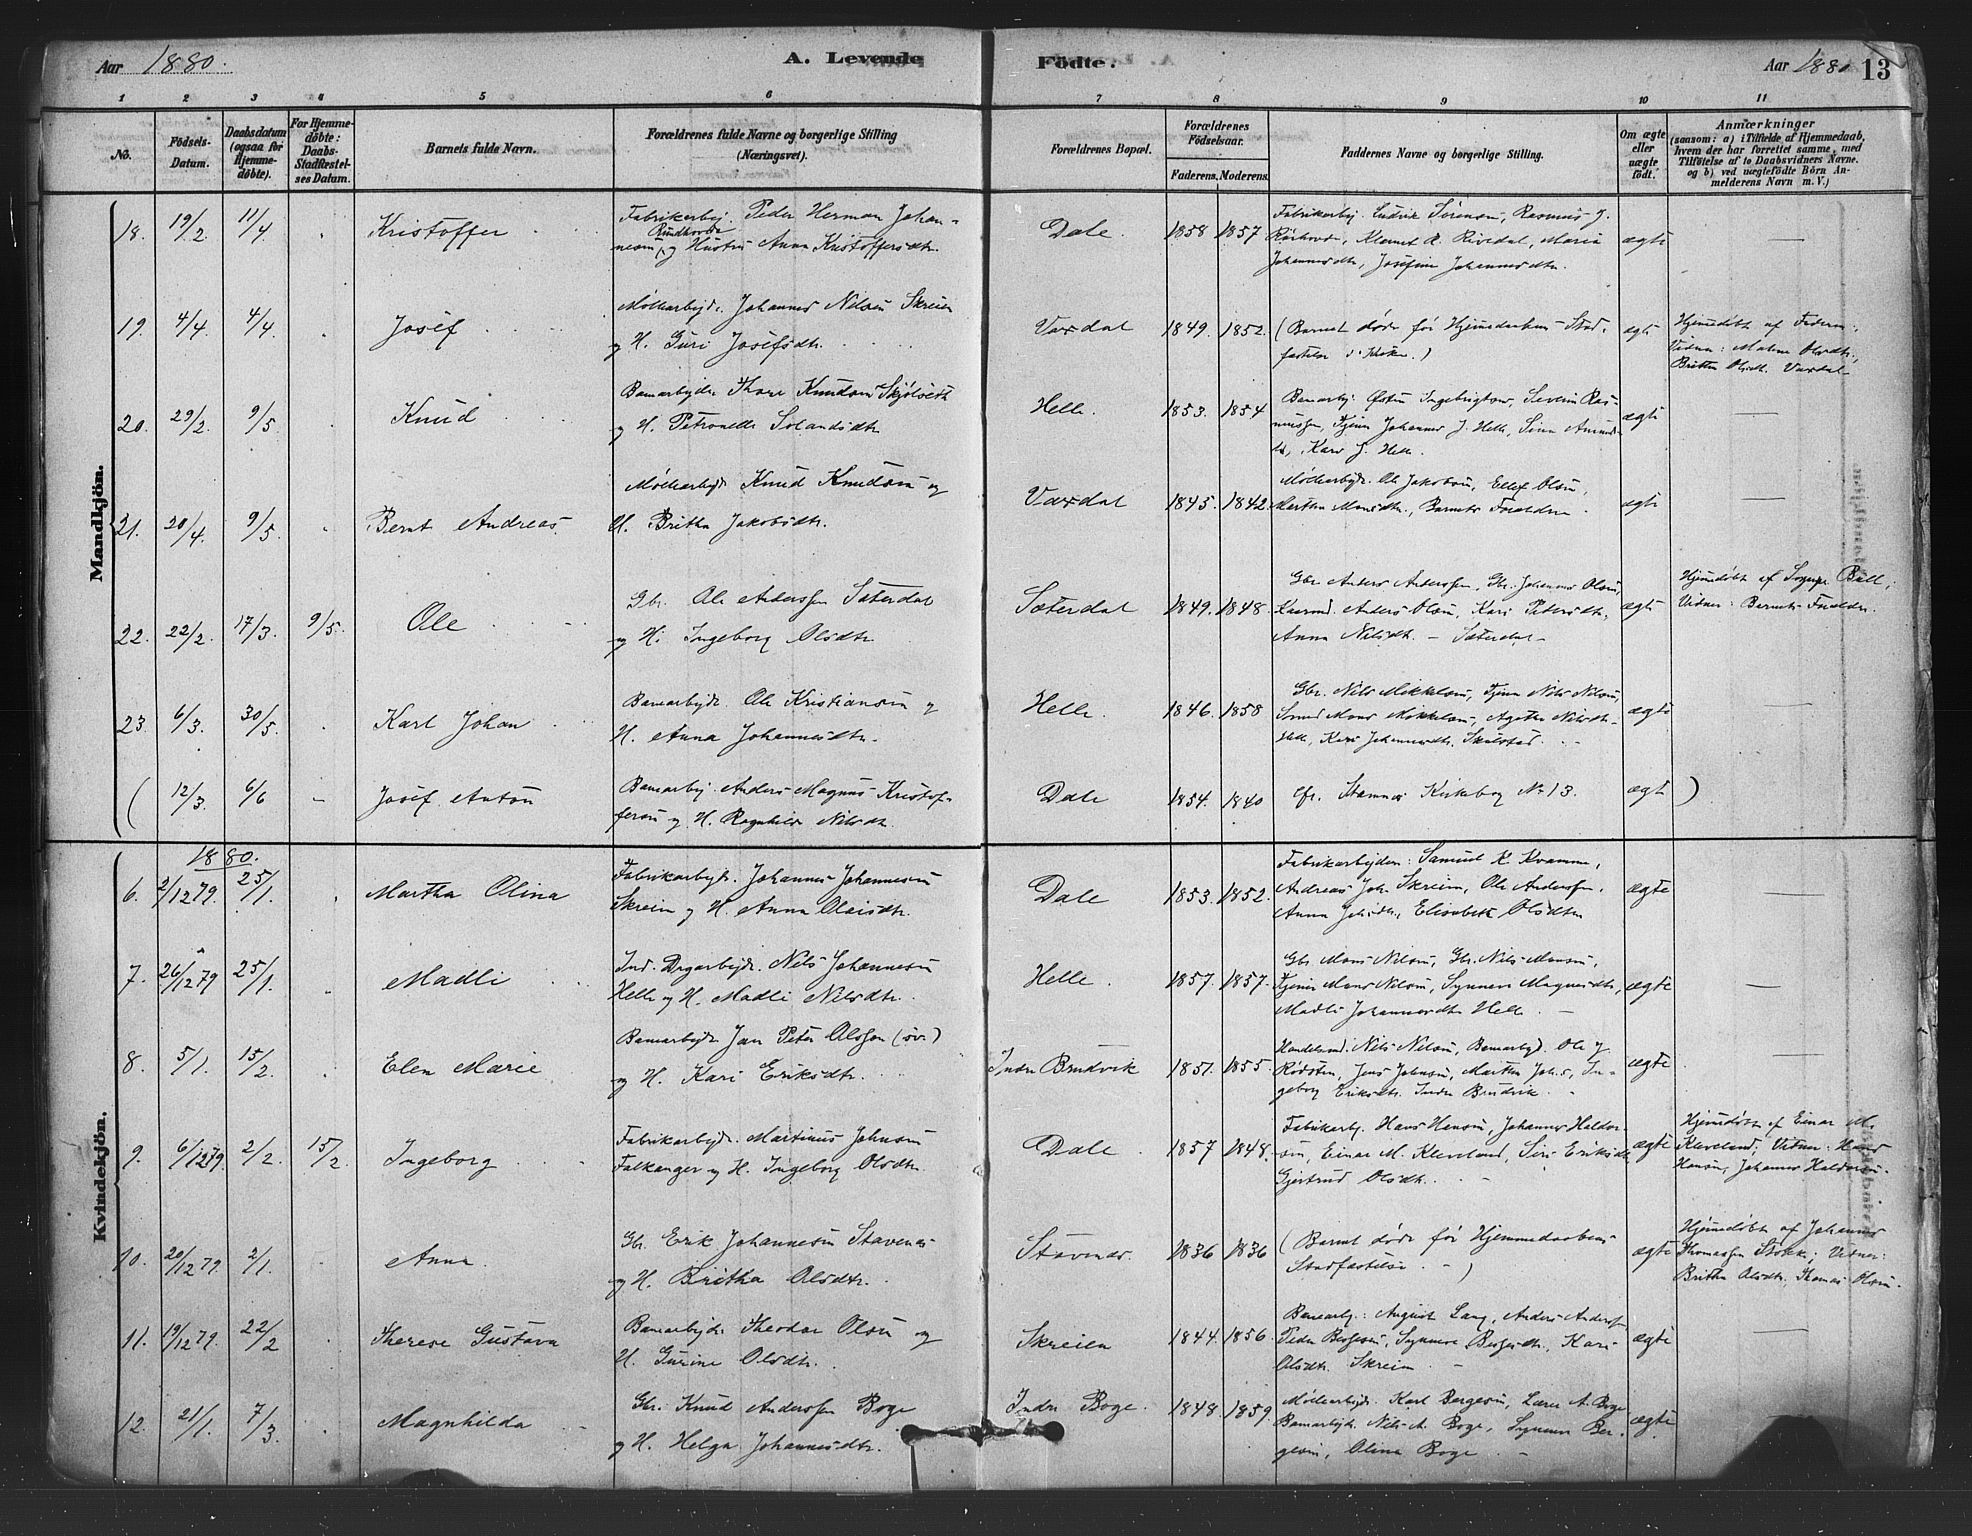 Aar 1880. A. Levende Födte. Aar 1880 13
1 2 3 4 5 6 7 8 9 10 11
No. Födsels-Datum. Daabsdatum (ogsaa for Hjemme-döbte). For Hjemme-döbte: Daabs-Stadfæstel-ses Datum. Barnets fulde Navn. Forældrenes fulde Navne og borgerlige Stilling (Næringsvei). Forældrenes Bopæl. Forældrenes Födselsaar. Faderens. Moderens. Faddernes Navne og borgerlige Stilling. Om ægte eller uægte født. Anmærkninger (saasom: a) i Tilfælde af Hjemmedaab, hvem der har forrettet samme, med Tilföielse af to Daabsvidners Navne. og b) ved uægtefödte Börn An-melderens Navn m. V.)
Mandkjön.
18. 19/2 11/4 Kristoffer Fabrikarbej. Peder Herman Johan-
nesen og Hustru Anna Kristoffersdtr. Dale. 1858 1857 Fabrikarbej. Ludvik Sørensen, Rasmus J.
Klemet A. Rivedal, Maria
Johannesdtr, Josefine Johannesdtr. ægte
19. 4/4. 4/4. Josef Møllearbejdr. Johannes Nilsen Skreien
og H. Guri Josefsdtr. Vaxdal 1849. 1852. (Barnet døde før Hjemmedaabens Stad-
fæstelse i Kirken.) ægte Hjemdøbt af Faderen.
Vidner: Malene Olsdtr.,
Britha Olsdt. Vaxdal
20. 29/2. 9/5. Knud Banearbejdr. Thore Knudsen Skjølseth
og H. Petronelle Solandsdtr. Helle. 1853. 1854 Banearbj. Østen Ingebrigtsen, Severin Ras-
mussen, Tjener Johannes J. Helle, Sina
Kari J. Helle. ægte
21. 20/4. 9/5. Bernt Andreas. Møllearbejdr. Knud Knudsen og
H. Britha Jakobsdtr. Vaxdal 1845. 1842 Møllearbejdr. Ole Jakobsen, Ellef Olsen,
Martha Monsdtr., Barnets Forældre. ægte
22. 22/2. 17/3. 9/5. Ole Gbr. Ole Anderssen Sæterdal
og H. Ingeborg Olsdtr. Sæterdal 1849. 1848. Gbr. Anders Anderssen, Gbr. Johannes Olsen,
Kaarmd. Anders Olsen, Kari Pedersdtr.
Anna Nilsdt. – Sæterdal – ægte Hjemdøbt af Sognepr. Bull,
Vidner: Barnets Forældre.
23. 6/3. 30/5. Karl Johan Banearbejdr. Ole Kristiansen og
H. Anna Johannesdtr. Helle. 1846. 1858 Gbr. Nils Mikkelsen, Tjener Nils Nilsen,
Smed Mons Mikkelsen, Agathe Nilsdtr
Helle, Kari Johannesdtr. Skulstad. ægte
( 12/3. 6/6 – Josef Anton Banearbej. Anders Magnus Kristof-
fersen og H. Ragnhild Nilsdt. Dale 1854. 1840 cfr. Stamnes Kirkebog No 13. ægte )
Kvindekjön.
1880.
6. 2/12 79. 25/1. Martha Olina Fabrikarbejdr. Johannes Johannesen
Skreien og H. Anna Olaisdtr. Dale 1853. 1852. Fabrikarbejdere: Samuel K. Kvamme,
Andreas Joh. Skreien, Ole Anderssen.
Anna Johsdtr., Elisabeth Olsdtr. ægte
7. 26/12 79 25/1. Madli Ind. Dagarbejdr. Nils Johannesen
Helle og H. Madli Nilsdtr. Helle. 1857. 1857. Gbr. Mons Nilsen, Gbr. Nils Monsen,
Tjener Mons Nilsen, Synneve Magnesdtr,
Madli Johannesdtr. Helle. ægte
8. 5/1. 15/2. Elen Marie Banearbejdr. Jan Peter Olsson (sv.)
og H. Kari Eriksdtr. Indre Brudvik 1851. 1855. Handelsmd. Nils Nilsen, Banearbejd. Ole J.
Rødsten, Jens Johnsen, Martha Johs., In-
geborg Eriksdtr. Indre Brudvik. ægte
9. 6/12 79. 2/2. 15/2. Ingeborg Fabrikarbejdr. Martinus Johnsen
Falkanger og H. Ingeborg Olsdtr. Dale. 1857 1848. Fabrikarbj. Hans Hansen, Johannes Haldor-
sen, Einar M. Kleveland, Siri Eriksdtr
Gjertrud Olsdt. ægte Hjemdøbt af Einar M.
Kleveland, Vidner: Hans
Hansen, Johannes Haldorsen.
10. 20/12 79. 2/1. Anna. Gbr. Erik Johannesen Stavenes
og H. Britha Olsdtr. Stavenes 1836 1836 (Barnet døde før Hjemmedaabens
Stadfæstelse.) ægte Hjemmedøbt af Johannes
Thomassen Stokke; Vidner:
Britha Olsdtr. Thomas Olsen.
11. 19/12 79. 22/2 Therese Gustava Banearbejdr. Theodor Olsen og
H. Gurine Olsdtr. Skreien 1844. 1856. Banearbj: August Lang, Anders Anderssen
Peder Bergesen, Synneve Bergesdtr., Kari
Olsdtr. Skreien. ægte
12. 21/1. 7/3. Magnhilda Gbr. Knud Anderssen Boge
og H. Helga Johannesdtr. Indre Boge. 1848. 1859. Møllearbejdr. Karl Bergesen, Lærer A. Boge
Banearbejdr. Nils A. Boge, Synneve Ber-
gesen, Olina Boge ægte.